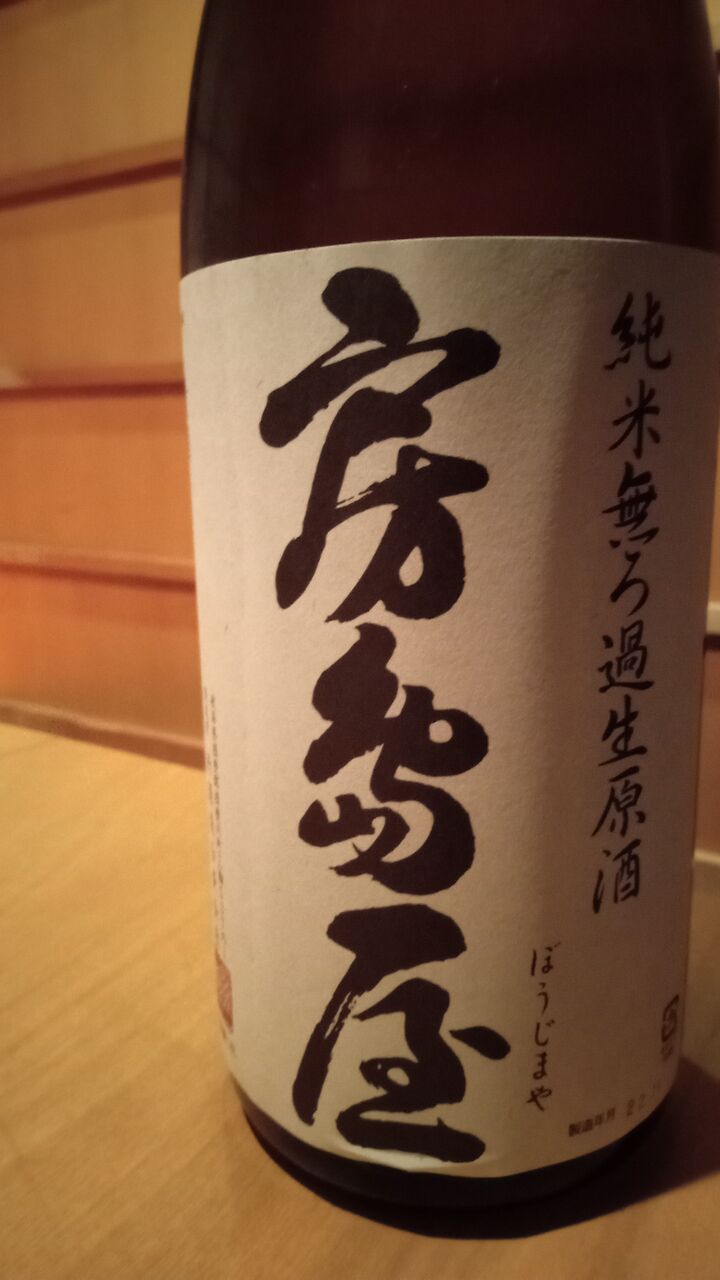 純米無ろ過生原酒
房島屋
ぼうじまや
製造年月 22.